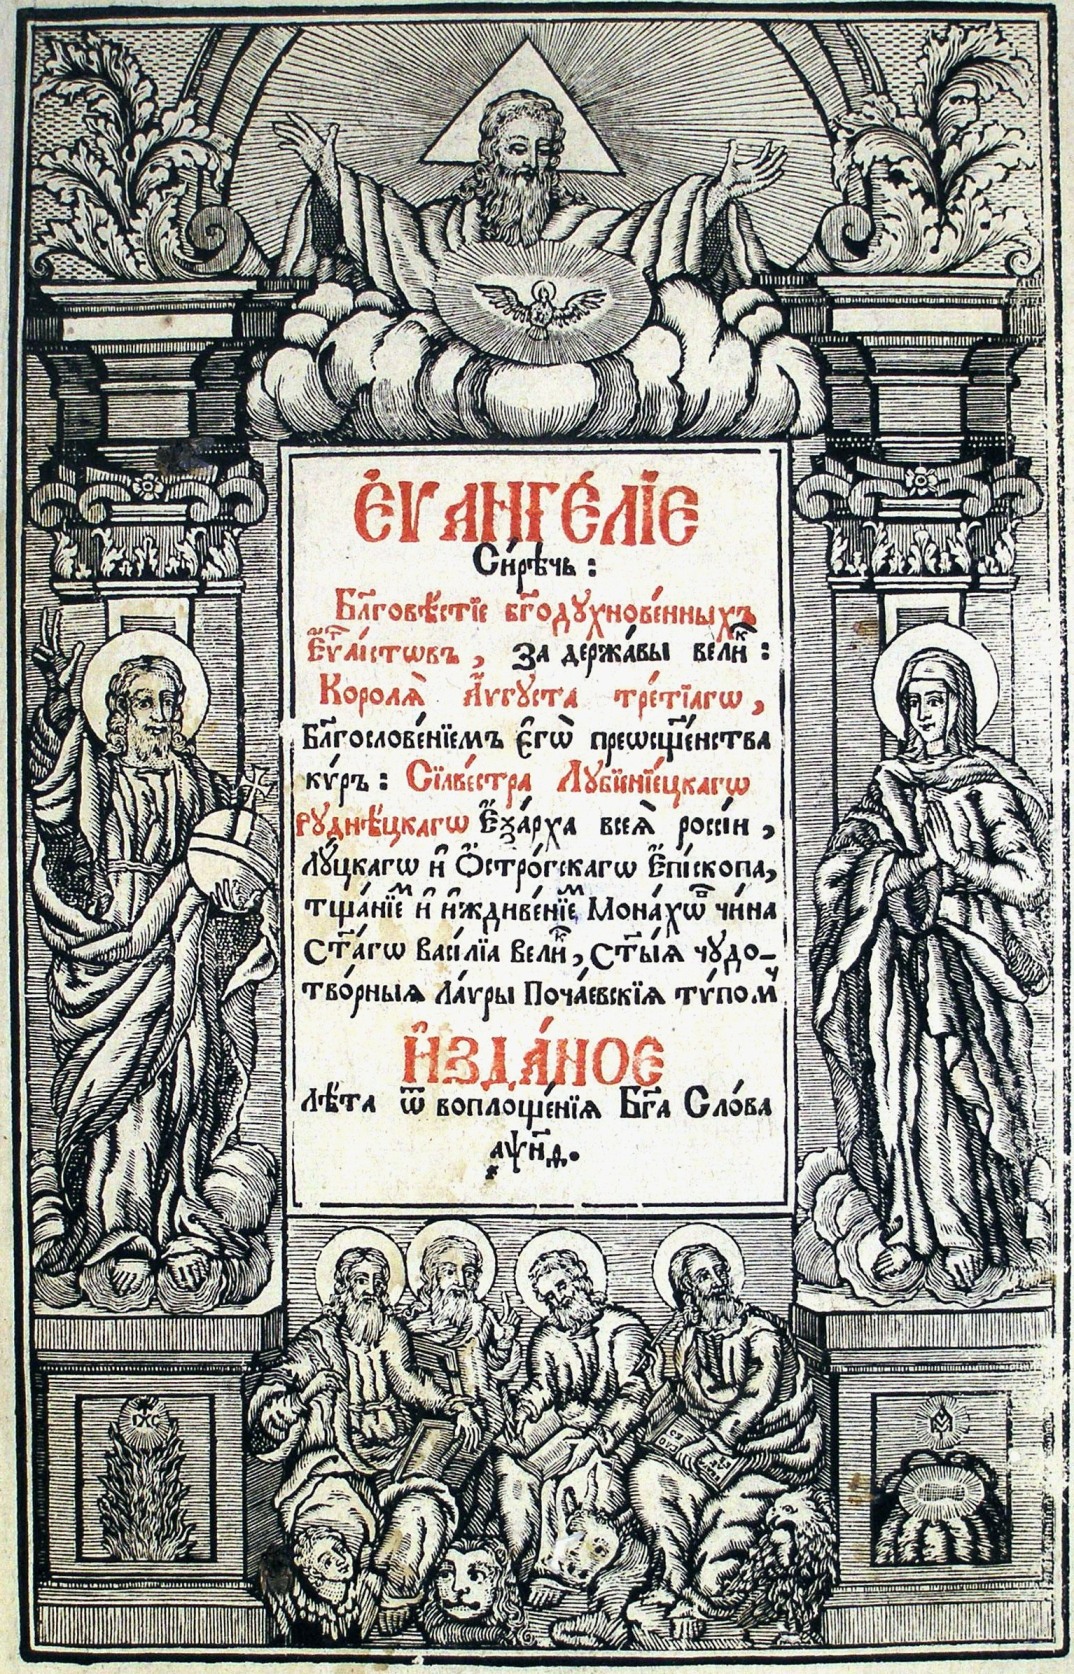 Є҆ѵⷢ҇АНГЕ́ЛЇЕ
Си́рѣчь :
Бл҃говѣ́стїе бг҃одꙋхнове́нныхъ
Є҆ѵⷢ҇лі́стѡвъ , за держа́вы велиⷦ҇ :
Королѧ̀ А҆́ѵгꙋста тре́тїѧгѡ ,
Бл҃гослове́нїемъ є҆гѡ̀ преѡсщ҃е́нства
кѵ́ръ : Сїлве́стра Лꙋбїени́ецкагѡ
рꙋднѣ́цкагѡ Е҆́ѯа́рха всеѧ̀ россі́и ,
лꙋ́цкагѡ и҆ Ѻ҆стро́гскагѡ Е҆пі́скопа,
тща́нїеⷨ и҆ и҆ждиве́нїеⷨ Мона́хѡⷡ҇ чи́на
ст҃а́гѡ васі́лїа велиⷦ҇, ст҃ы́ѧ чꙋдо-
тво́рныѧ ла́ѵры Поча́евскїѧ тѵ́помⷱ҇
И҆ЗДА́НОЕ
лѣ́та ѿ воплоще́нїѧ Бг҃а Сло́ва
҂аѱн҃д.
ІХС
СВ